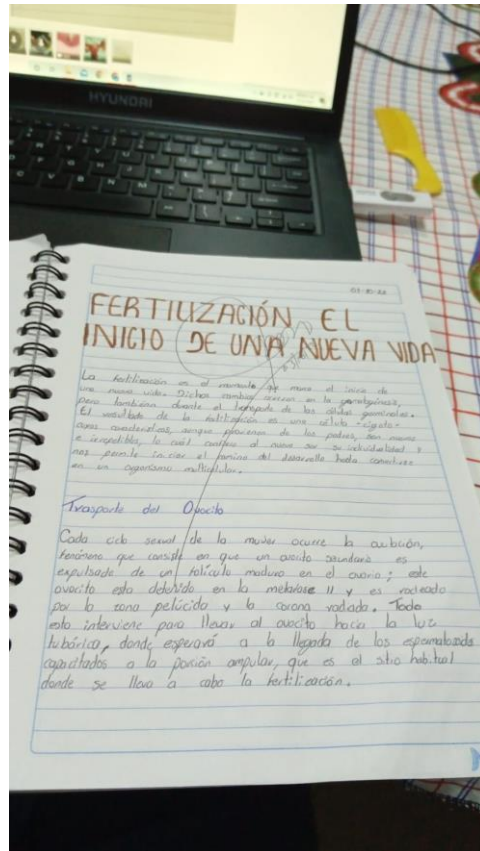 HYUNDAI
FERTILIZACIÓN, EL
INICIO DE UNA NUEVA VIDA
La fertilización es el momento que marca el inicio de
una nueva vida. Dichos cambios ocurren en la
pero también durante el transporte de las células germinales.
El resultado de la fertilización es una célula -cigoto-
cuyas características, aunque provienen de los padres, son nuevas
e irrepetibles, lo cual confiere al nuevo ser su individualidad y
nos permite iniciar el camino del desarrollo hasta
en un organismo multicelular.
Trasporte del Ovocito
Cada ciclo sexual de la mujer ocurre la
fenómeno que consiste en que un ovocito secundario es
expulsado de un folículo maduro en el ovario; este
ovocito esta detenido en la metafase II y es rodeado
por la zona pelúcida y la corona radada. Todo
esto interviene para llevar al ovocito hacia la luz
tubárica, donde esperará a la llegada de los
capacitados a la porción ampular, que es el sitio habitual
donde se lleva a cabo la fertilización.